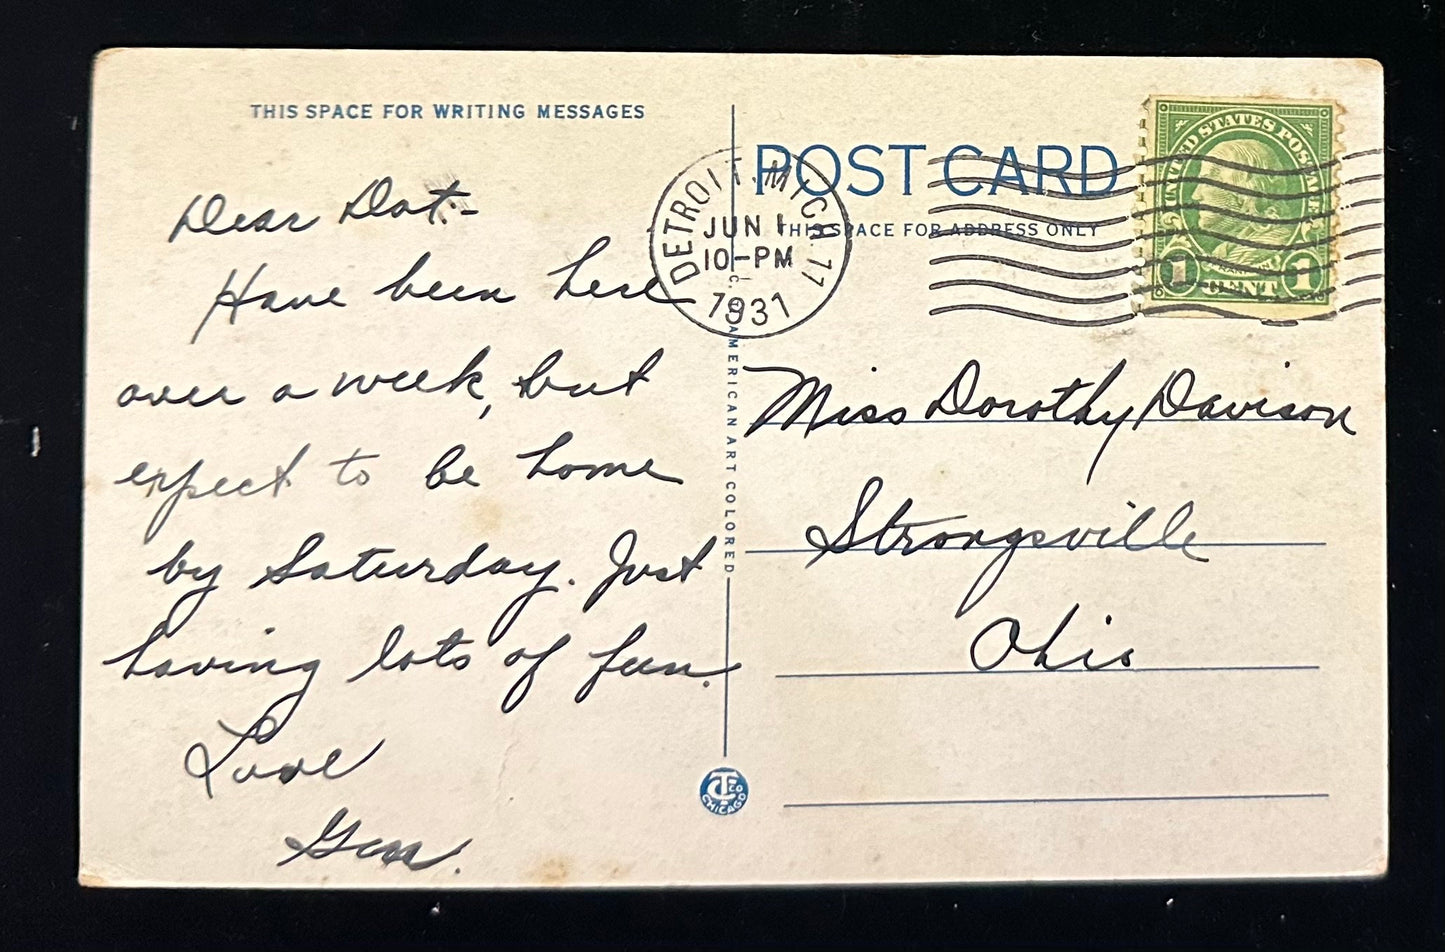 THIS SPACE FOR WRITING MESSAGES
Dear Dot:-
Have been here
over a week, but
expect to be home
by Saturday. Just
having lots of fun.
Love
POST CARD
THIS SPACE FOR ADDRESS ONLY
DETROIT. MICH. 11
JUN 1
10-PM
1931
UNITED STATES POSTAGE
FRANKLIN
1 CENT 1
Miss Dorothy Davison
Strongsville
Ohio
AMERICAN ART COLORED
CTCO
CHICAGO